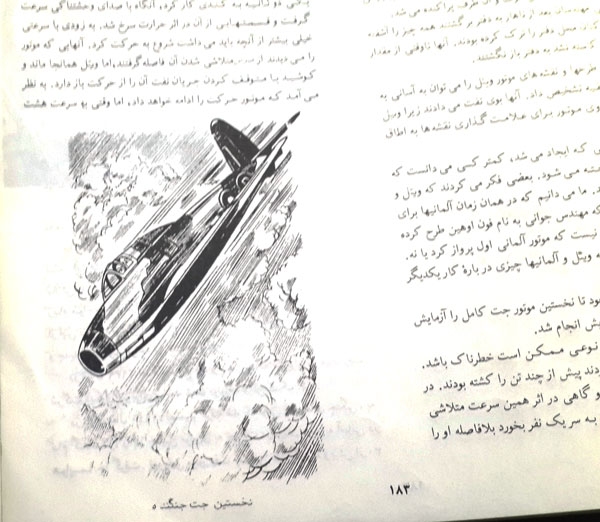 دو ثانیه به کندی کار کرد، آنگاه با صدای وحشتناکی سرعت
گرفت و قسمتهایی از آن در اثر حرارت سرخ شد. به زودی با سرعتی
خیلی بیشتر از آنچه باید می داشت شروع به حرکت کرد. آنهایی که موتور
را می دیدند از متلاشی شدن آن فاصله گرفتند، اما ویتل همانجا ماند و
کوشید با متوقف کردن جریان نفت آن را از حرکت باز دارد. به نظر
می آمد که موتور حرکت را ادامه خواهد داد، اما وقتی به سرعت هشت
نخستین جت جنگنده
پراکنده می شد.
مهندسان بعد از ناهار به دفتر برگشتند همه چیز را آشفته
دفتر را ترک کرده بودند. آنها تا وقتی از مقدار
کاسته نشد به دفتر باز نگشتند.
طرحها و نقشه های موتور ویتل را می توان به آسانی به
تشخیص داد. آنها بوی نفت می دادند زیرا ویتل
موتور برای علامت گذاری نقشه ها به اطاق
که ایجاد می شد، کمتر کسی می دانست که
می شود. بعضی فکر می کردند که ویتل و
ما می دانیم که در همان زمان آلمانیها برای
که مهندس جوانی به نام فون اوهین طرح کرده
نیست که موتور آلمانی اول پرواز کرد یا نه.
ویتل و آلمانیها چیزی درباره کار یکدیگر
بود تا نخستین موتور جت کامل را آزمایش
انجام شد.
نوعی ممکن است خطرناک باشد.
پیش از چند تن را کشته بودند. در
و گاهی در اثر همین سرعت متلاشی
به سر یک نفر بخورد بلافاصله او را
۱۸۳